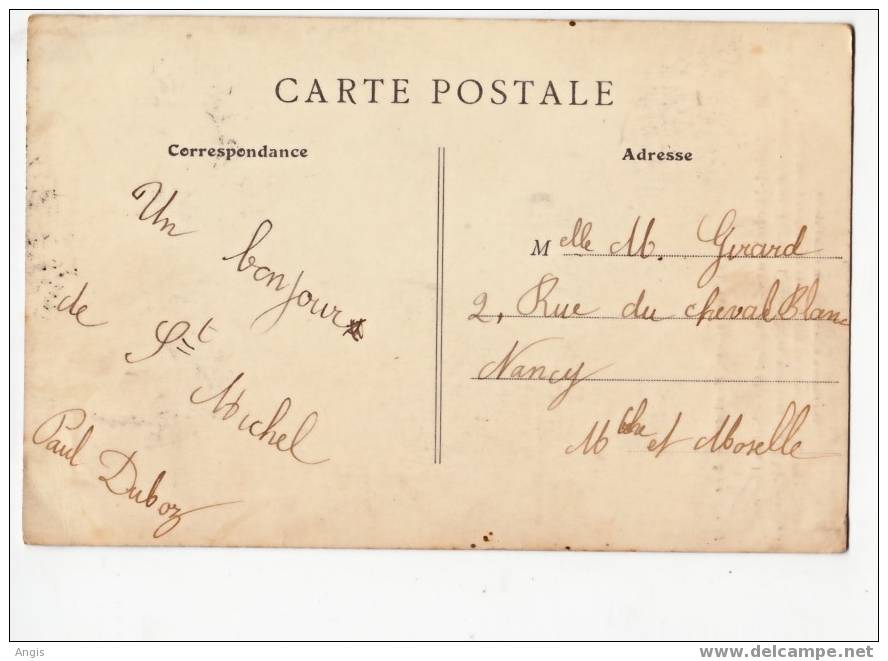 CARTE POSTALE
Correspondance
Un bonjour
de St Michel
Paul Duboz
Adresse
Melle M. Girard
2, Rue du cheval Blanc
Nancy
Mthe et Moselle
Angis
www.delcampe.net